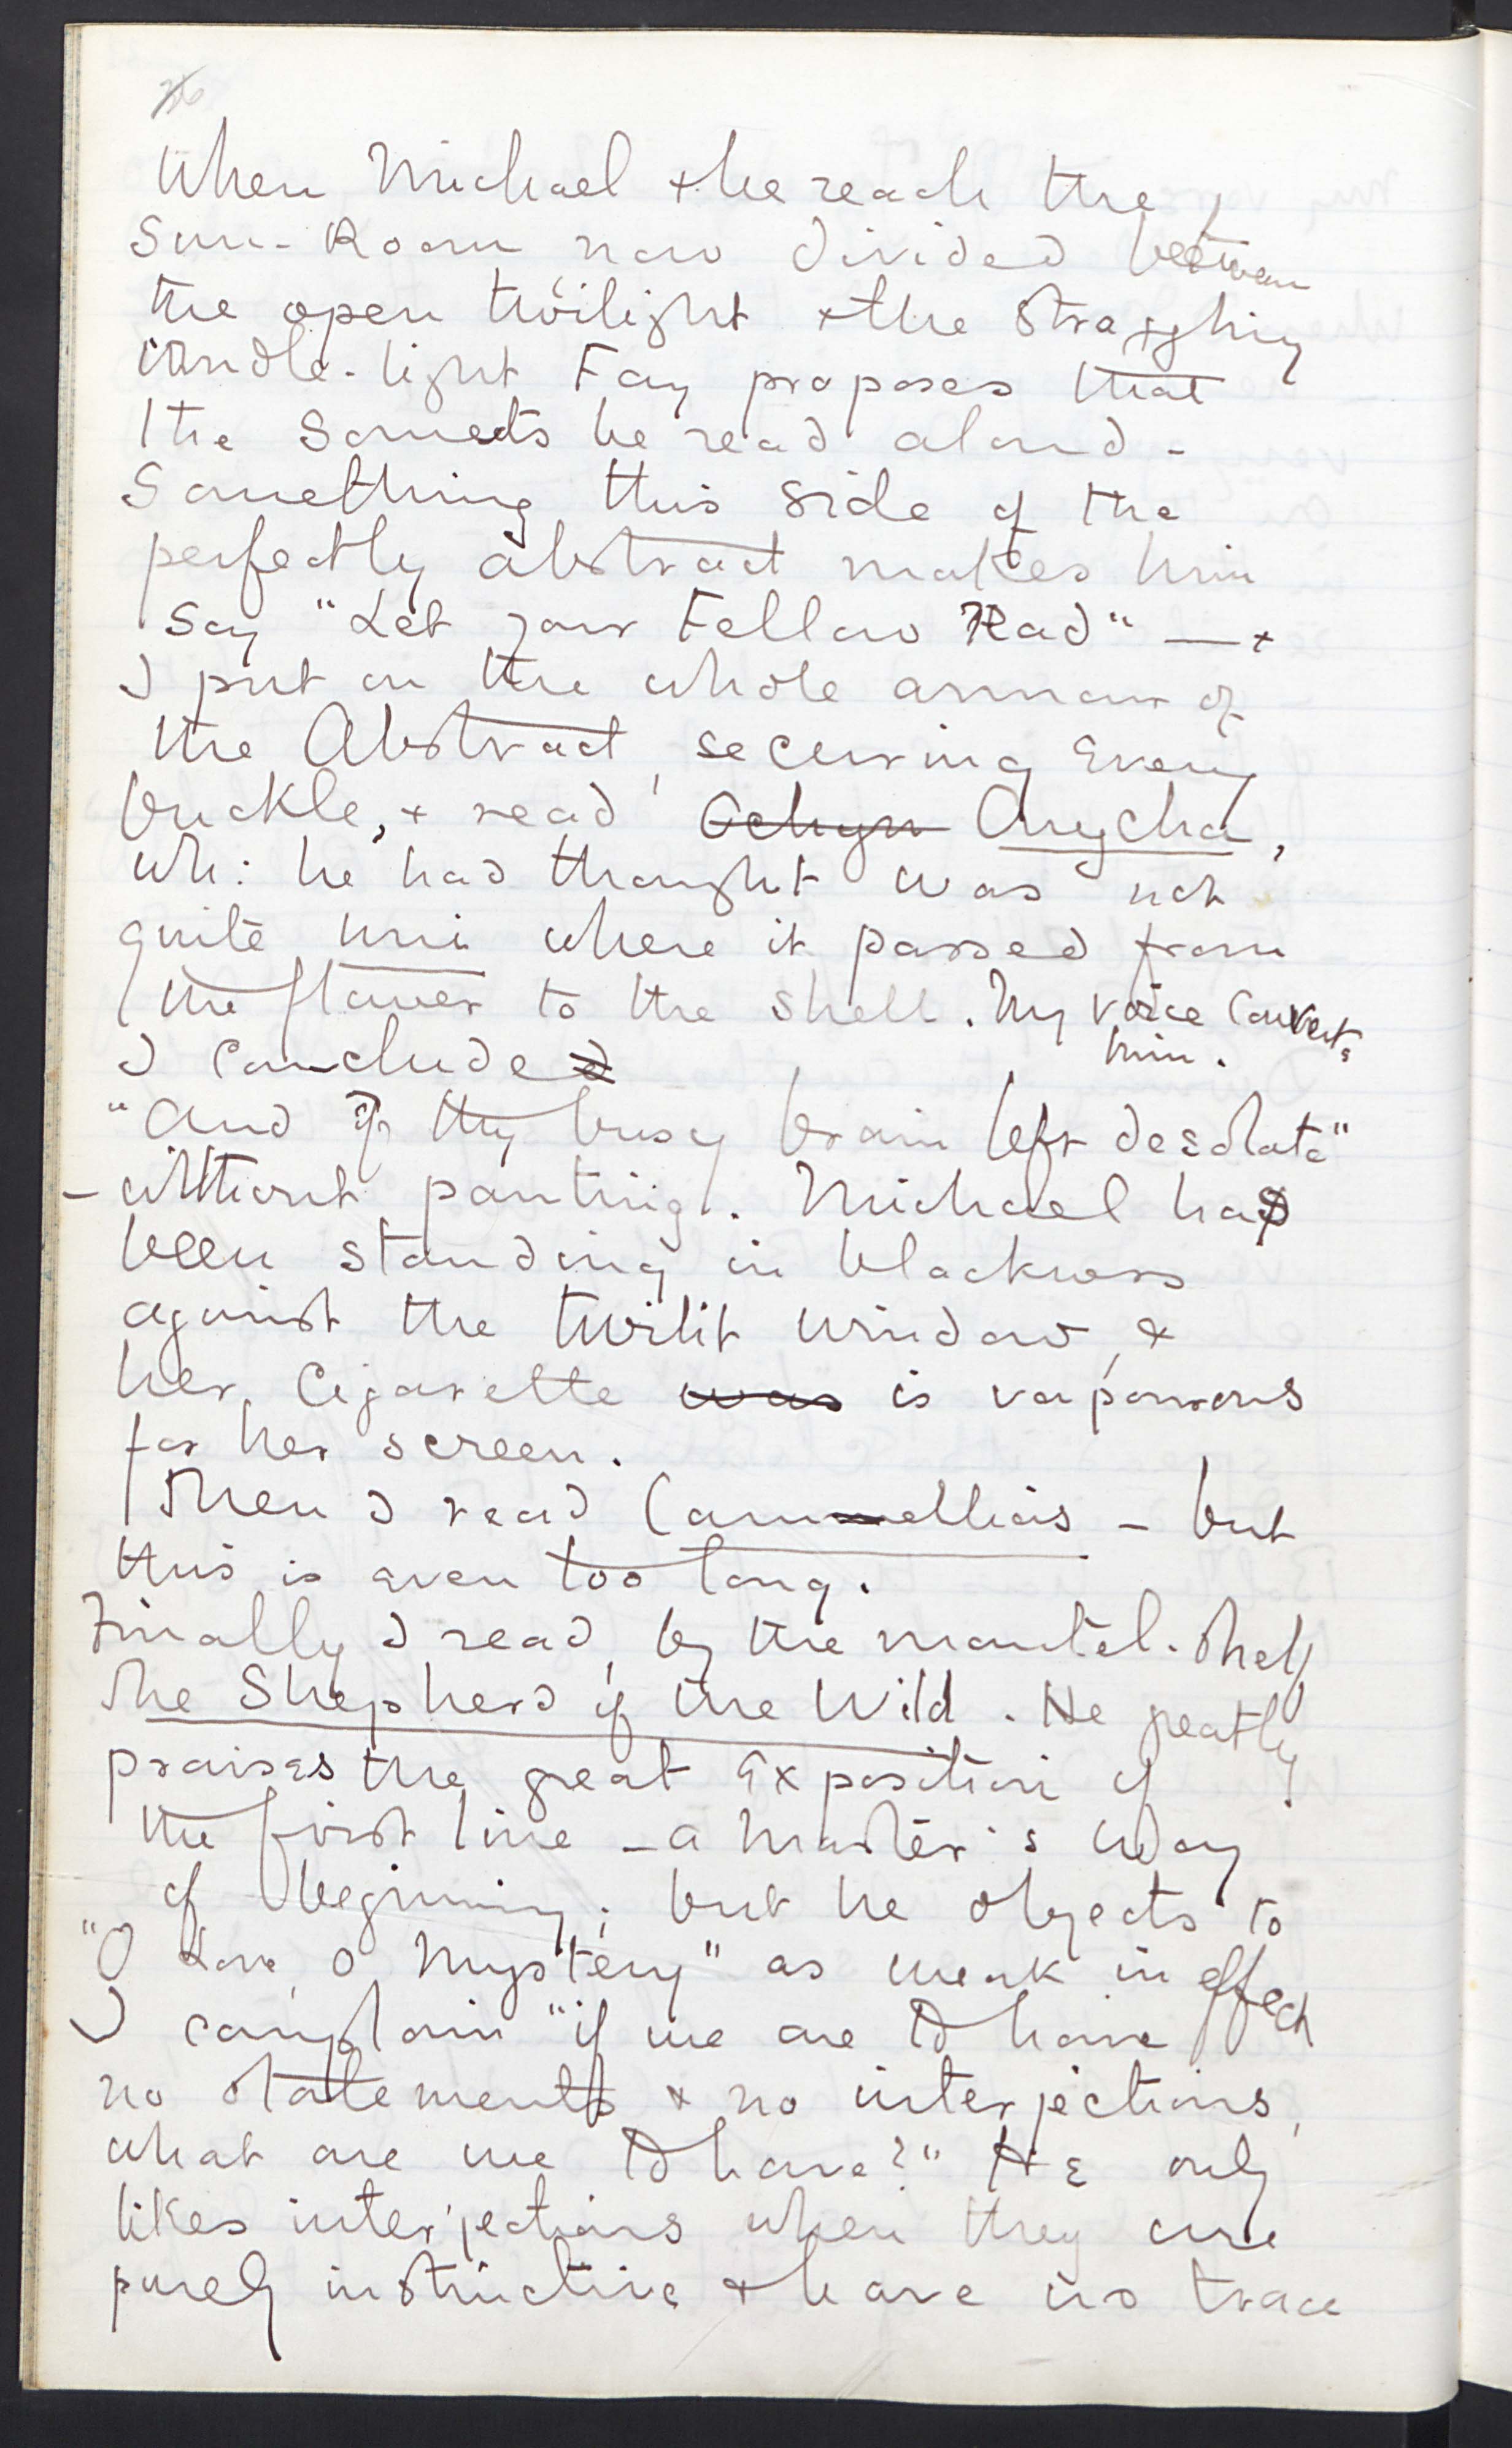 When Michael & he reach the
Sun-Room now divided between
the open twilight & the straggling
candle-light Fay proposes that
the Sonnets be read aloud -
Something this side of the
perfectly abstract makes him
say "Let your Fellow Read" — &
I put on the whole armour of
the Abstract, securing every
buckle, & read Onycha,
wh: he had thought was not
quite uni where it passed from
the flower to the shell. My voice converts
him.
I conclude
"And if thy busy brain left desolate"
- without panting. Michael has
been standing in blackness
against the twilit window, &
her cigarette was is vapourous
for her screen.
Then I read Camellias - but
this is even too long.
Finally I read, by the mantel-shelf
The Shepherd of the Wild. He greatly
praises the great exposition of
the first line - a master's way
of beginning; but he objects to
"O Love, O Mystery" as weak in effect
I complain "if we are to have
no statements & no interjections,
what are we to have?" He only
likes interjections when they are
purely instructive & leave no trace